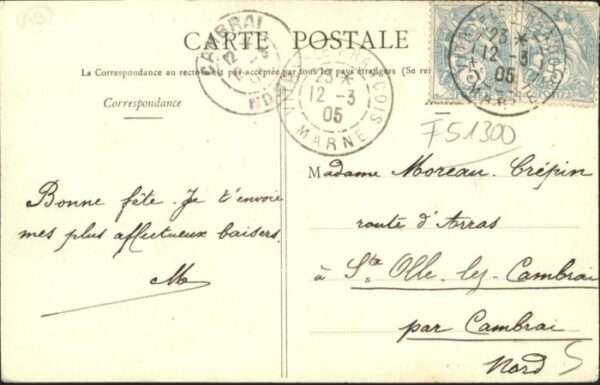 CARTE POSTALE
La Correspondance au recto n'est pas acceptée par tous les pays étrangers (Se re
Correspondance
CAMBRAI
12
NORD
VITRY-LE-FRANÇOIS
23 *
12 - 3
05
MARNE
23 *
12 - 3
05
MARNE
F51300
Bonne fête. Je t'envoie
mes plus affectueux baisers.
M
Madame Moreau-Crépin
route d'Arras
à Ste Olle-lez-Cambrai
par Cambrai
Nord